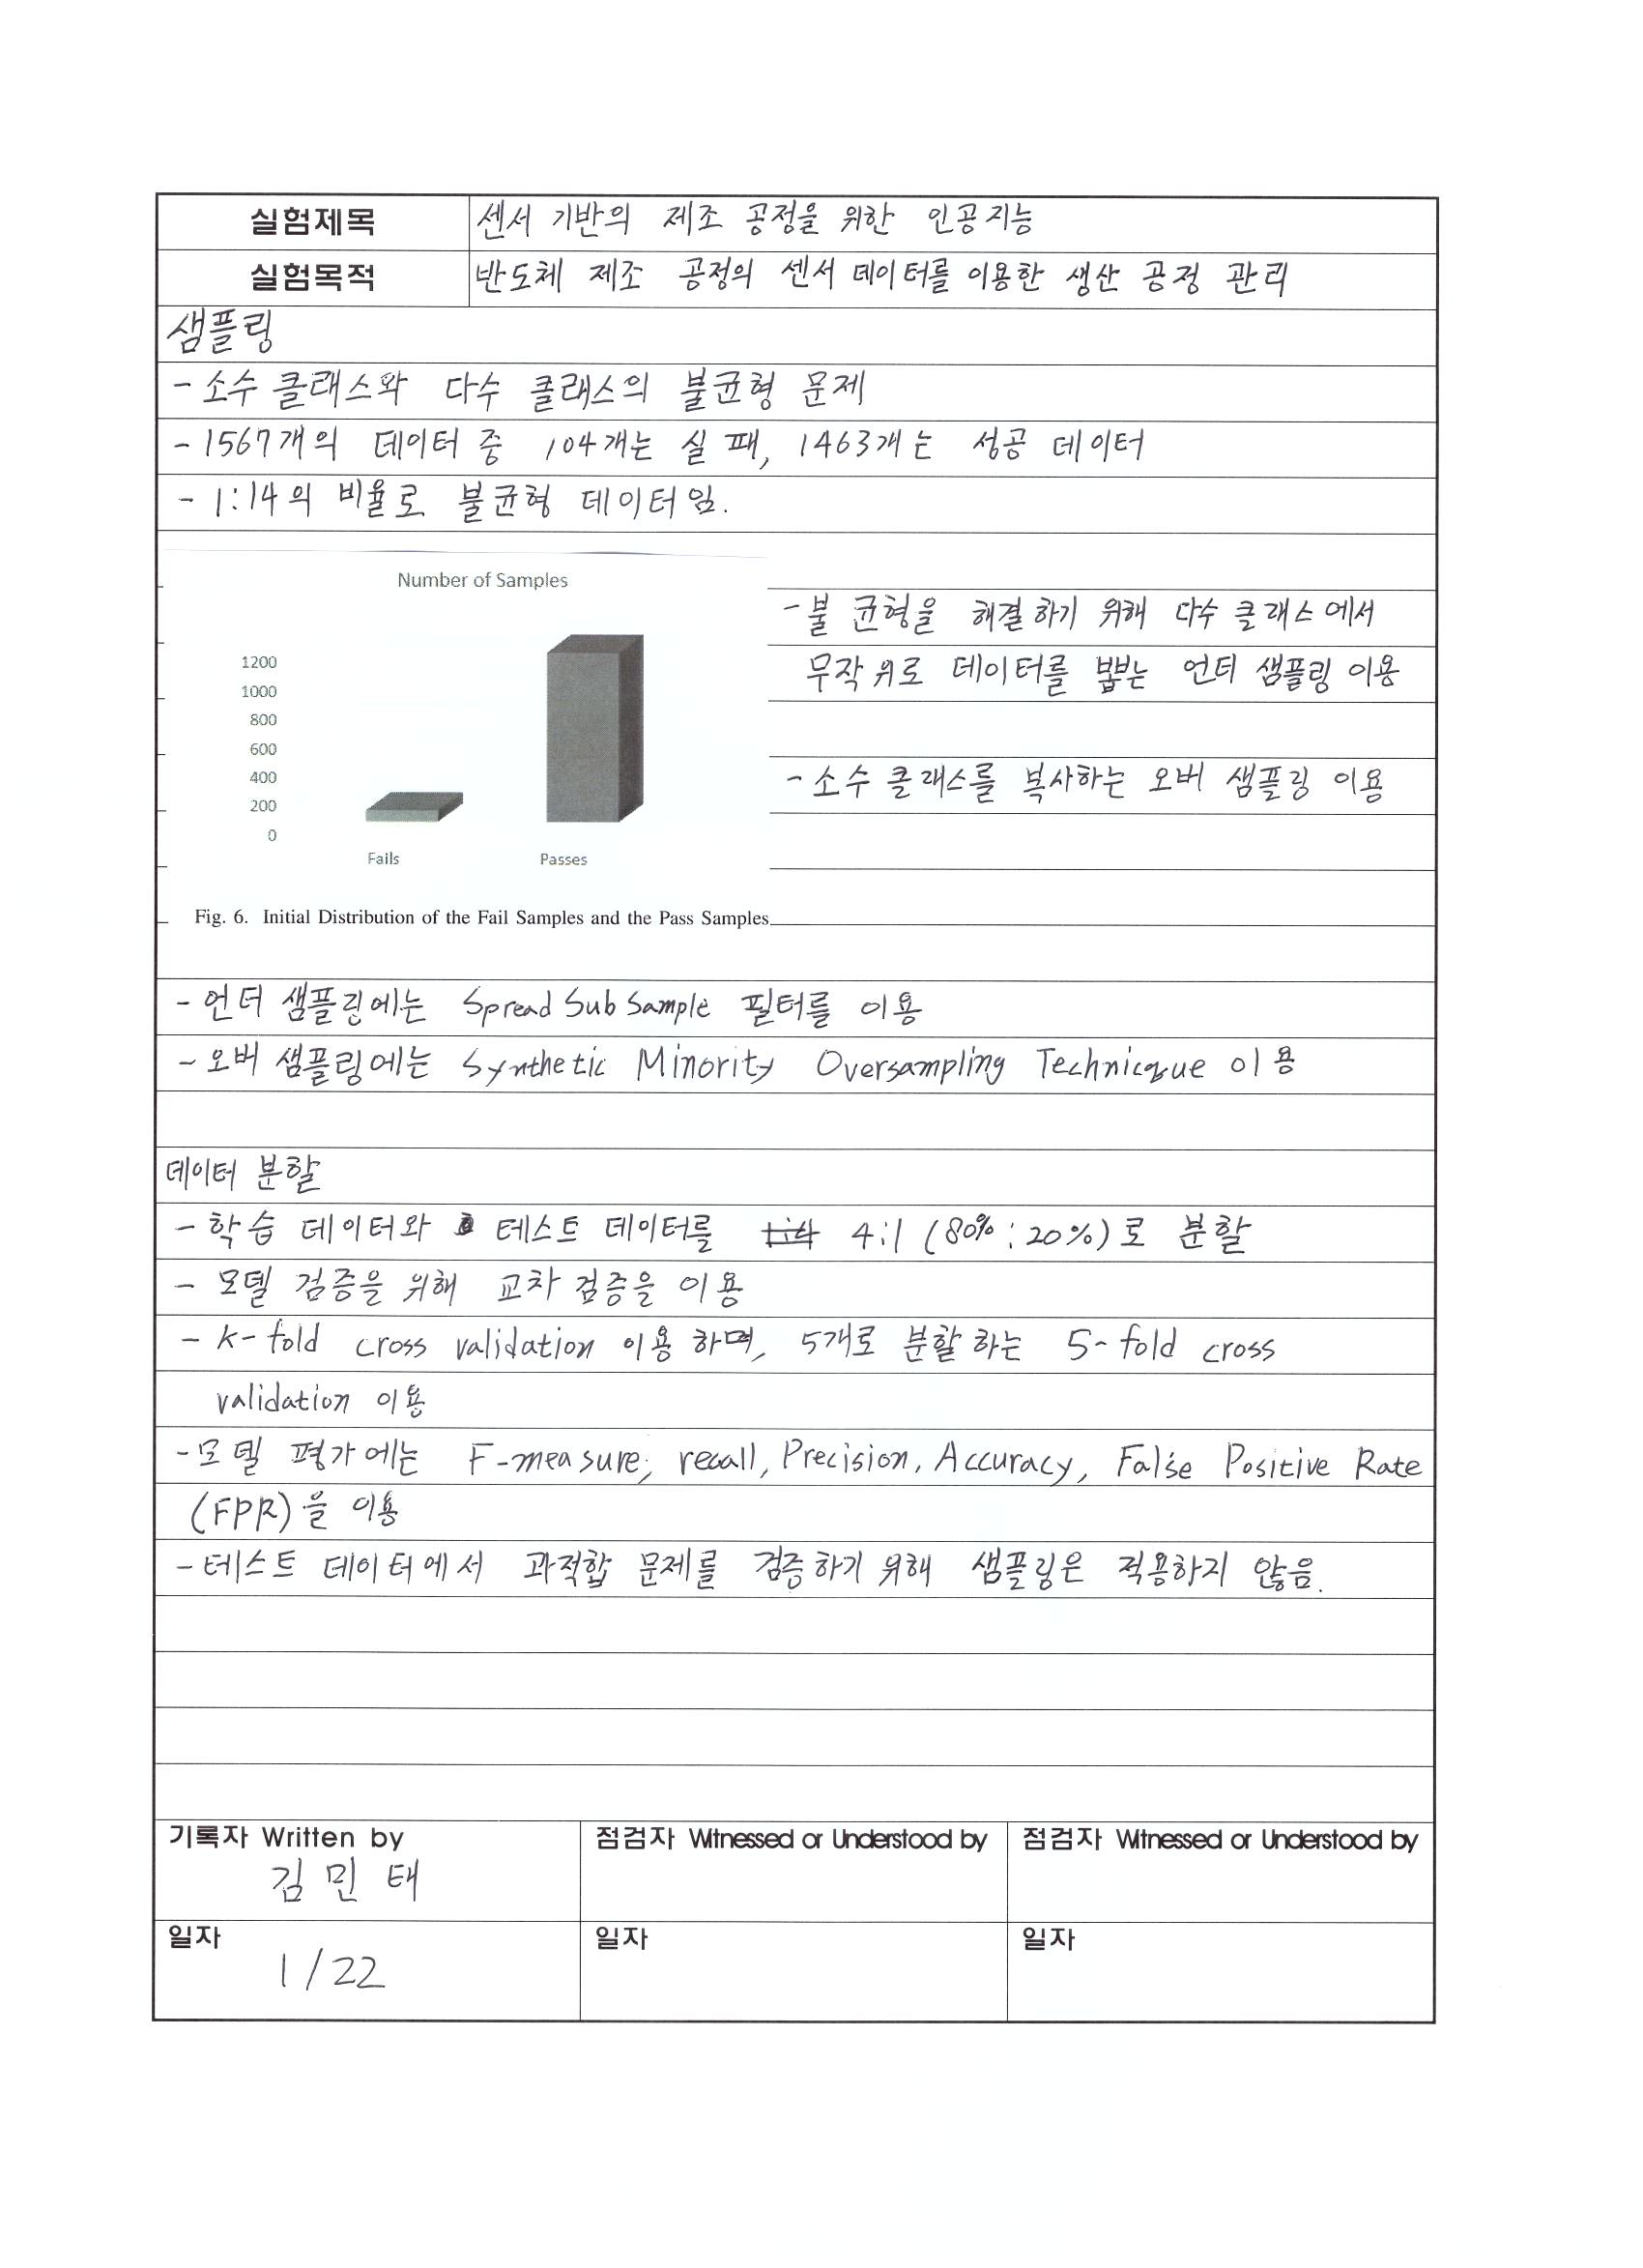 실험제목 센서 기반의 제조 공정을 위한 인공지능
실험목적 반도체 제조 공정의 센서 데이터를 이용한 생산 공정 관리
샘플링
- 소수 클래스와 다수 클래스의 불균형 문제
- 1567개의 데이터 중 104개는 실패, 1463개는 성공 데이터
- 1:14의 비율로 불균형 데이터임.
Number of Samples
1200
1000
800
600
400
200
0
Fails Passes
Fig. 6. Initial Distribution of the Fail Samples and the Pass Samples
- 불균형을 해결하기 위해 다수 클래스에서
무작위로 데이터를 뽑는 언더 샘플링 이용
- 소수 클래스를 복사하는 오버 샘플링 이용
- 언더 샘플링에는 SpreadSubSample 필터를 이용
- 오버 샘플링에는 Synthetic Minority Oversampling Technicque 이용
데이터 분할
- 학습 데이터와 테스트 데이터를 4:1 (80% : 20%)로 분할
- 모델 검증을 위해 교차 검증을 이용
- k-fold cross validation 이용하며, 5개로 분할하는 5-fold cross
validation 이용
- 모델 평가에는 F-measure, recall, Precision, Accuracy, False Positive Rate
(FPR)을 이용
- 테스트 데이터에서 과적합 문제를 검증하기 위해 샘플링은 적용하지 않음.
기록자 Written by 점검자 Witnessed or Understood by 점검자 Witnessed or Understood by
김민태
일자 일자 일자
1/22